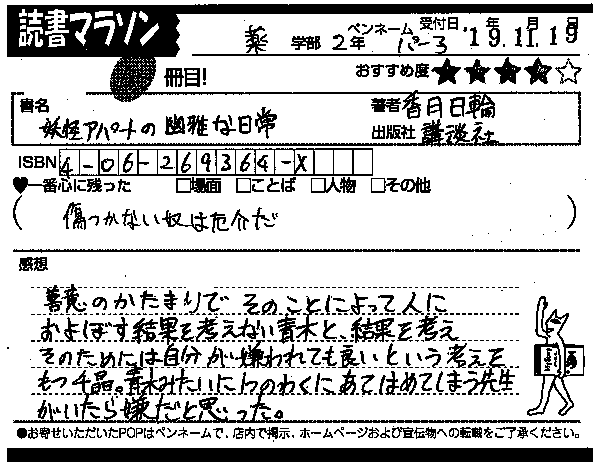 読書マラソン
薬 学部 2年 ペンネーム パーる 受付日 '19年11月19日
冊目!
おすすめ度 ★★★★☆
書名 妖怪アパートの幽雅な日常
著者 香月日輪
出版社 講談社
ISBN 4-06-269364-X
♥一番心に残った □場面 □ことば □人物 □その他
(傷つかない奴は厄介だ)
感想
善意のかたまりで そのことによって人に
およぼす結果を考えない青木と、結果を考え
そのためには自分が嫌われても良いという考えを
もつ千晶。青木みたいに1つのわくにあてはめてしまう先生
がいたら嫌だと思った。
●お寄せいただいたPOPはペンネームで、店内で掲示、ホームページおよび宣伝物への転載をご了承ください。